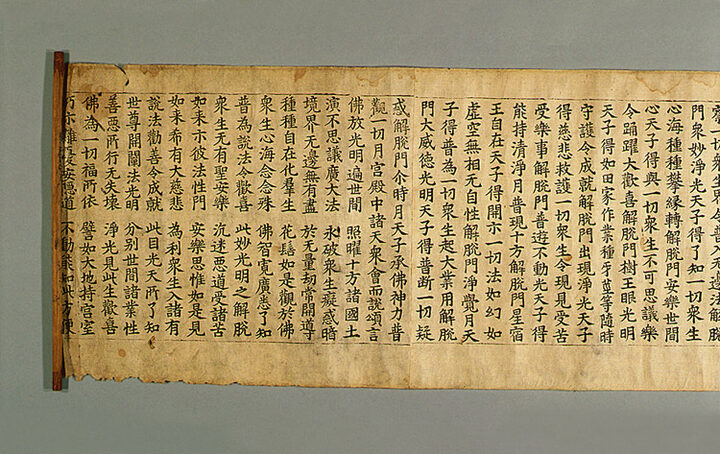 察一切衆生界令普入無邊法解脫
門衆妙淨光天子得了知一切衆生
心海種種攀縁轉解脫門安樂世間
心天子得與一切衆生不可思議樂
令踊躍大歡喜解脫門樹王眼光明
天子得如田家作業種芽莖等隨時
守護令成就解脫門出現淨光天子
得慈悲救護一切衆生令現見受苦
受樂事解脫門普遊不動光天子得
能持清淨月普現十方解脫門星宿
王自在天子得開示一切法如幻如
虛空無相無自性解脫門淨覺月天
子得普為一切衆生起大業用解脫
門大威徳光明天子得普斷一切疑
惑解脫門尒時月天子承佛神力普
觀一切月宮殿中諸天衆會而說頌言
佛放光明遍世間 照曜十方諸國土
演不思議廣大法 永破衆生癡惑暗
境界无邊無有盡 於无量劫常開導
種種自在化羣生 花髻如是觀於佛
衆生心海念念殊 佛智寬廣悉了知
普為說法令歡喜 此妙光明之解脫
衆生无有聖安樂 沉迷惡道受諸苦
如来示彼法性門 安樂思惟如是見
如来希有大慈悲 為利衆生入諸有
說法勸善令成就 此目光天所了知
世尊開闡法光明 分别世間諸業性
善惡所行无失壞 淨光見此生歡喜
佛為一切福所依 譬如大地持宮室
巧示離憂安隱道 不動能知此方便